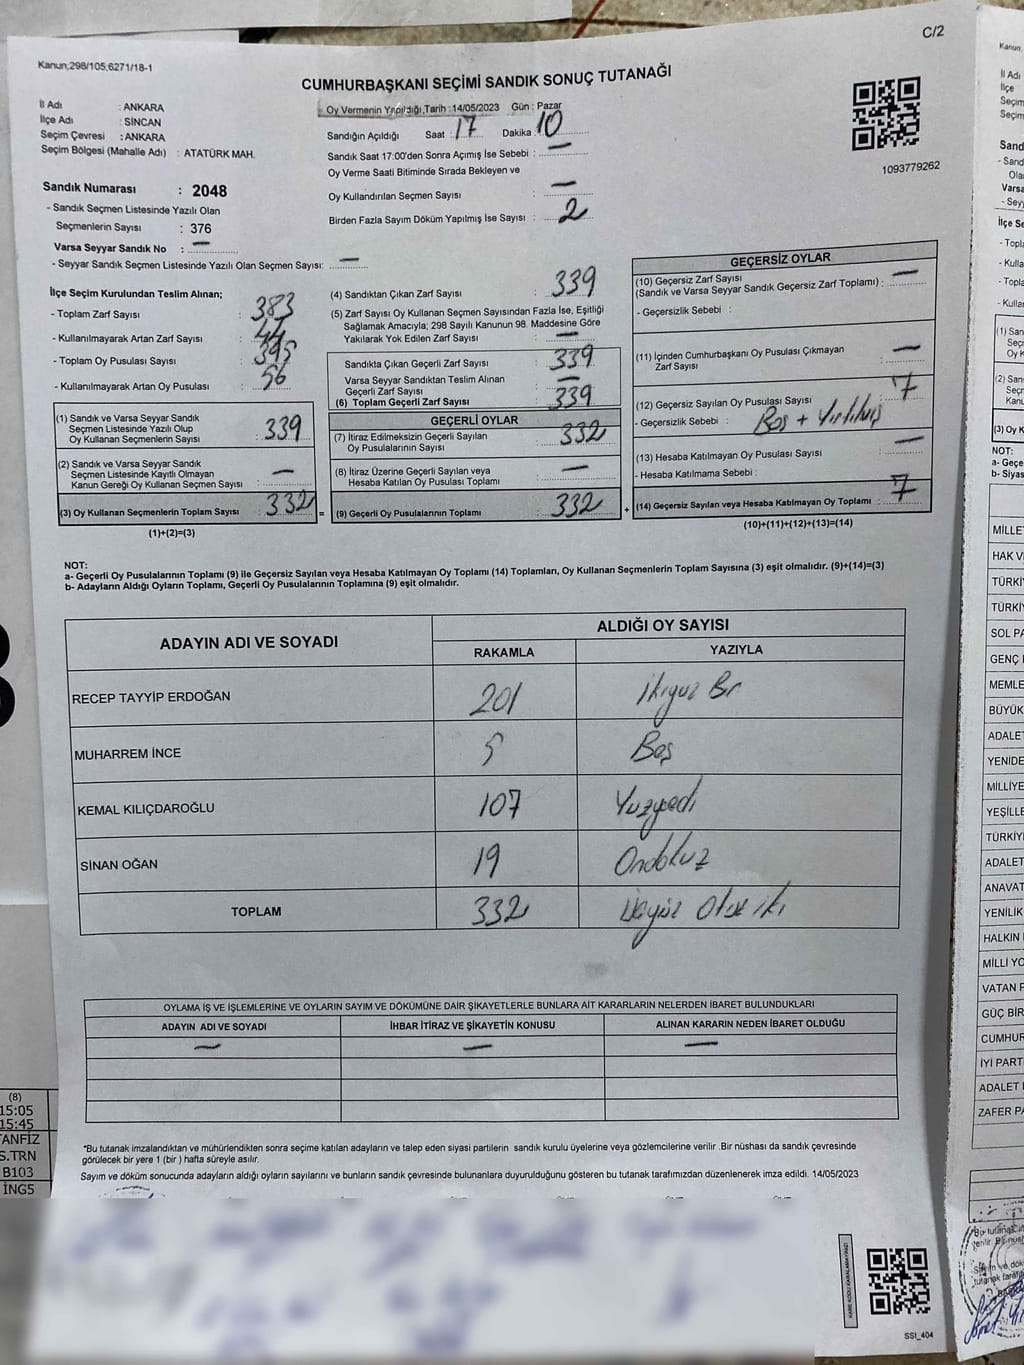 C/2
Kanun;298/105,6271/18-1
CUMHURBAŞKANI SEÇİMİ SANDIK SONUÇ TUTANAĞI
İl Adı : ANKARA
İlçe Adı : SİNCAN
Seçim Çevresi : ANKARA
Seçim Bölgesi (Mahalle Adı) : ATATÜRK MAH.
Oy Vermenin Yapıldığı,Tarih : 14/05/2023 Gün : Pazar
Sandığın Açıldığı Saat : 17 Dakika : 10
Sandık Saat 17:00'den Sonra Açımış İse Sebebi : —
Oy Verme Saati Bitiminde Sırada Bekleyen ve
Oy Kullandırılan Seçmen Sayısı : —
Birden Fazla Sayım Döküm Yapılmış İse Sayısı : 2
1093779262
Sandık Numarası : 2048
- Sandık Seçmen Listesinde Yazılı Olan
Seçmenlerin Sayısı : 376
Varsa Seyyar Sandık No : —
- Seyyar Sandık Seçmen Listesinde Yazılı Olan Seçmen Sayısı: —
İlçe Seçim Kurulundan Teslim Alınan;
- Toplam Zarf Sayısı : 383
- Kullanılmayarak Artan Zarf Sayısı : 44
- Toplam Oy Pusulası Sayısı : 395
- Kullanılmayarak Artan Oy Pusulası : 56
(1) Sandık ve Varsa Seyyar Sandık
Seçmen Listesinde Yazılı Olup
Oy Kullanan Seçmenlerin Sayısı : 339
(2) Sandık ve Varsa Seyyar Sandık
Seçmen Listesinde Kayıtlı Olmayan
Kanun Gereği Oy Kullanan Seçmen Sayısı : —
(3) Oy Kullanan Seçmenlerin Toplam Sayısı : 332 =
(1)+(2)=(3)
(4) Sandıktan Çıkan Zarf Sayısı : 339
(5) Zarf Sayısı Oy Kullanan Seçmen Sayısından Fazla İse, Eşitliği
Sağlamak Amacıyla; 298 Sayılı Kanunun 98. Maddesine Göre
Yakılarak Yok Edilen Zarf Sayısı : —
Sandıkta Çıkan Geçerli Zarf Sayısı : 339
Varsa Seyyar Sandıktan Teslim Alınan
Geçerli Zarf Sayısı : —
(6) Toplam Geçerli Zarf Sayısı : 339
GEÇERLİ OYLAR
(7) İtiraz Edilmeksizin Geçerli Sayılan
Oy Pusulalarının Sayısı : 332
(8) İtiraz Üzerine Geçerli Sayılan veya
Hesaba Katılan Oy Pusulası Toplamı : —
(9) Geçerli Oy Pusulalarının Toplamı : 332 +
GEÇERSİZ OYLAR
(10) Geçersiz Zarf Sayısı
(Sandık ve Varsa Seyyar Sandık Geçersiz Zarf Toplamı) : —
- Geçersizlik Sebebi :
(11) İçinden Cumhurbaşkanı Oy Pusulası Çıkmayan
Zarf Sayısı : —
(12) Geçersiz Sayılan Oy Pusulası Sayısı : 7
- Geçersizlik Sebebi : Boş + Yırtılmış
(13) Hesaba Katılmayan Oy Pusulası Sayısı : —
- Hesaba Katılmama Sebebi :
(14) Geçersiz Sayılan veya Hesaba Katılmayan Oy Toplamı : 7
(10)+(11)+(12)+(13)=(14)
NOT:
a- Geçerli Oy Pusulalarının Toplamı (9) ile Geçersiz Sayılan veya Hesaba Katılmayan Oy Toplamı (14) Toplamları, Oy Kullanan Seçmenlerin Toplam Sayısına (3) eşit olmalıdır. (9)+(14)=(3)
b- Adayların Aldığı Oyların Toplamı, Geçerli Oy Pusulalarının Toplamına (9) eşit olmalıdır.
ADAYIN ADI VE SOYADI ALDIĞI OY SAYISI
RAKAMLA YAZIYLA
RECEP TAYYİP ERDOĞAN 201 İkiyüz Bir
MUHARREM İNCE 5 Beş
KEMAL KILIÇDAROĞLU 107 Yuzyedi
SİNAN OĞAN 19 Ondokuz
TOPLAM 332 Üçyüz Otuz iki
OYLAMA İŞ VE İŞLEMLERİNE VE OYLARIN SAYIM VE DÖKÜMÜNE DAİR ŞİKAYETLERLE BUNLARA AİT KARARLARIN NELERDEN İBARET BULUNDUKLARI
ADAYIN ADI VE SOYADI İHBAR İTİRAZ VE ŞİKAYETİN KONUSU ALINAN KARARIN NEDEN İBARET OLDUĞU
— — —
*Bu tutanak imzalandıktan ve mühürlendikten sonra seçime katılan adayların ve talep eden siyasi partilerin sandık kurulu üyelerine veya gözlemcilerine verilir .Bir nüshası da sandık çevresinde
görülecek bir yere 1 (bir ) hafta süreyle asılır.
Sayım ve döküm sonucunda adayların aldığı oyların sayılarını ve bunların sandık çevresinde bulunanlara duyurulduğunu gösteren bu tutanak tarafımızdan düzenlenerek imza edildi. 14/05/2023
KARE KODU KARALAMAYINIZ!
SSI_404
(8)
15:05
15:45
TANFİZ
S.TRN
B103
İNG5
Kanun
İl Adı
İlçe
Seçim
Seçim
Sand
Varsa
İlçe Se
NOT:
MİLLET
HAK V
TÜRKİY
TÜRKİY
SOL PA
GENÇ
MEMLE
BÜYÜK
ADALET
YENİDE
MİLLİYE
YEŞİLLE
TÜRKİY
ADALET
ANAVAT
YENİLİK
HALKIN
MİLLİ YO
VATAN P
GÜÇ BİR
CUMHUR
İYİ PART
ADALET
ZAFER PA